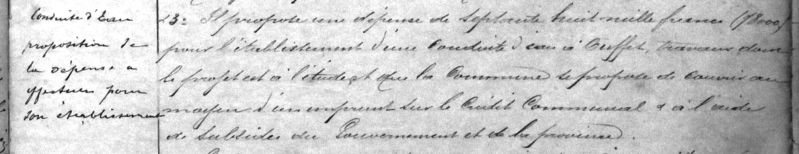 Conduite d'Eau
proposition de
la dépense a
effectuer pour
son établissement
23: Il propose une dépense de septante huit mille francs (78000)
pour l'établissement d'une conduite d'eau à Ouffet, travaux dont
le projet est à l'étude, et que la Commune se propose de couvrir au
moyen d'un emprunt sur le Crédit Communal & à l'aide
de subsides du Gouvernement et de la province.